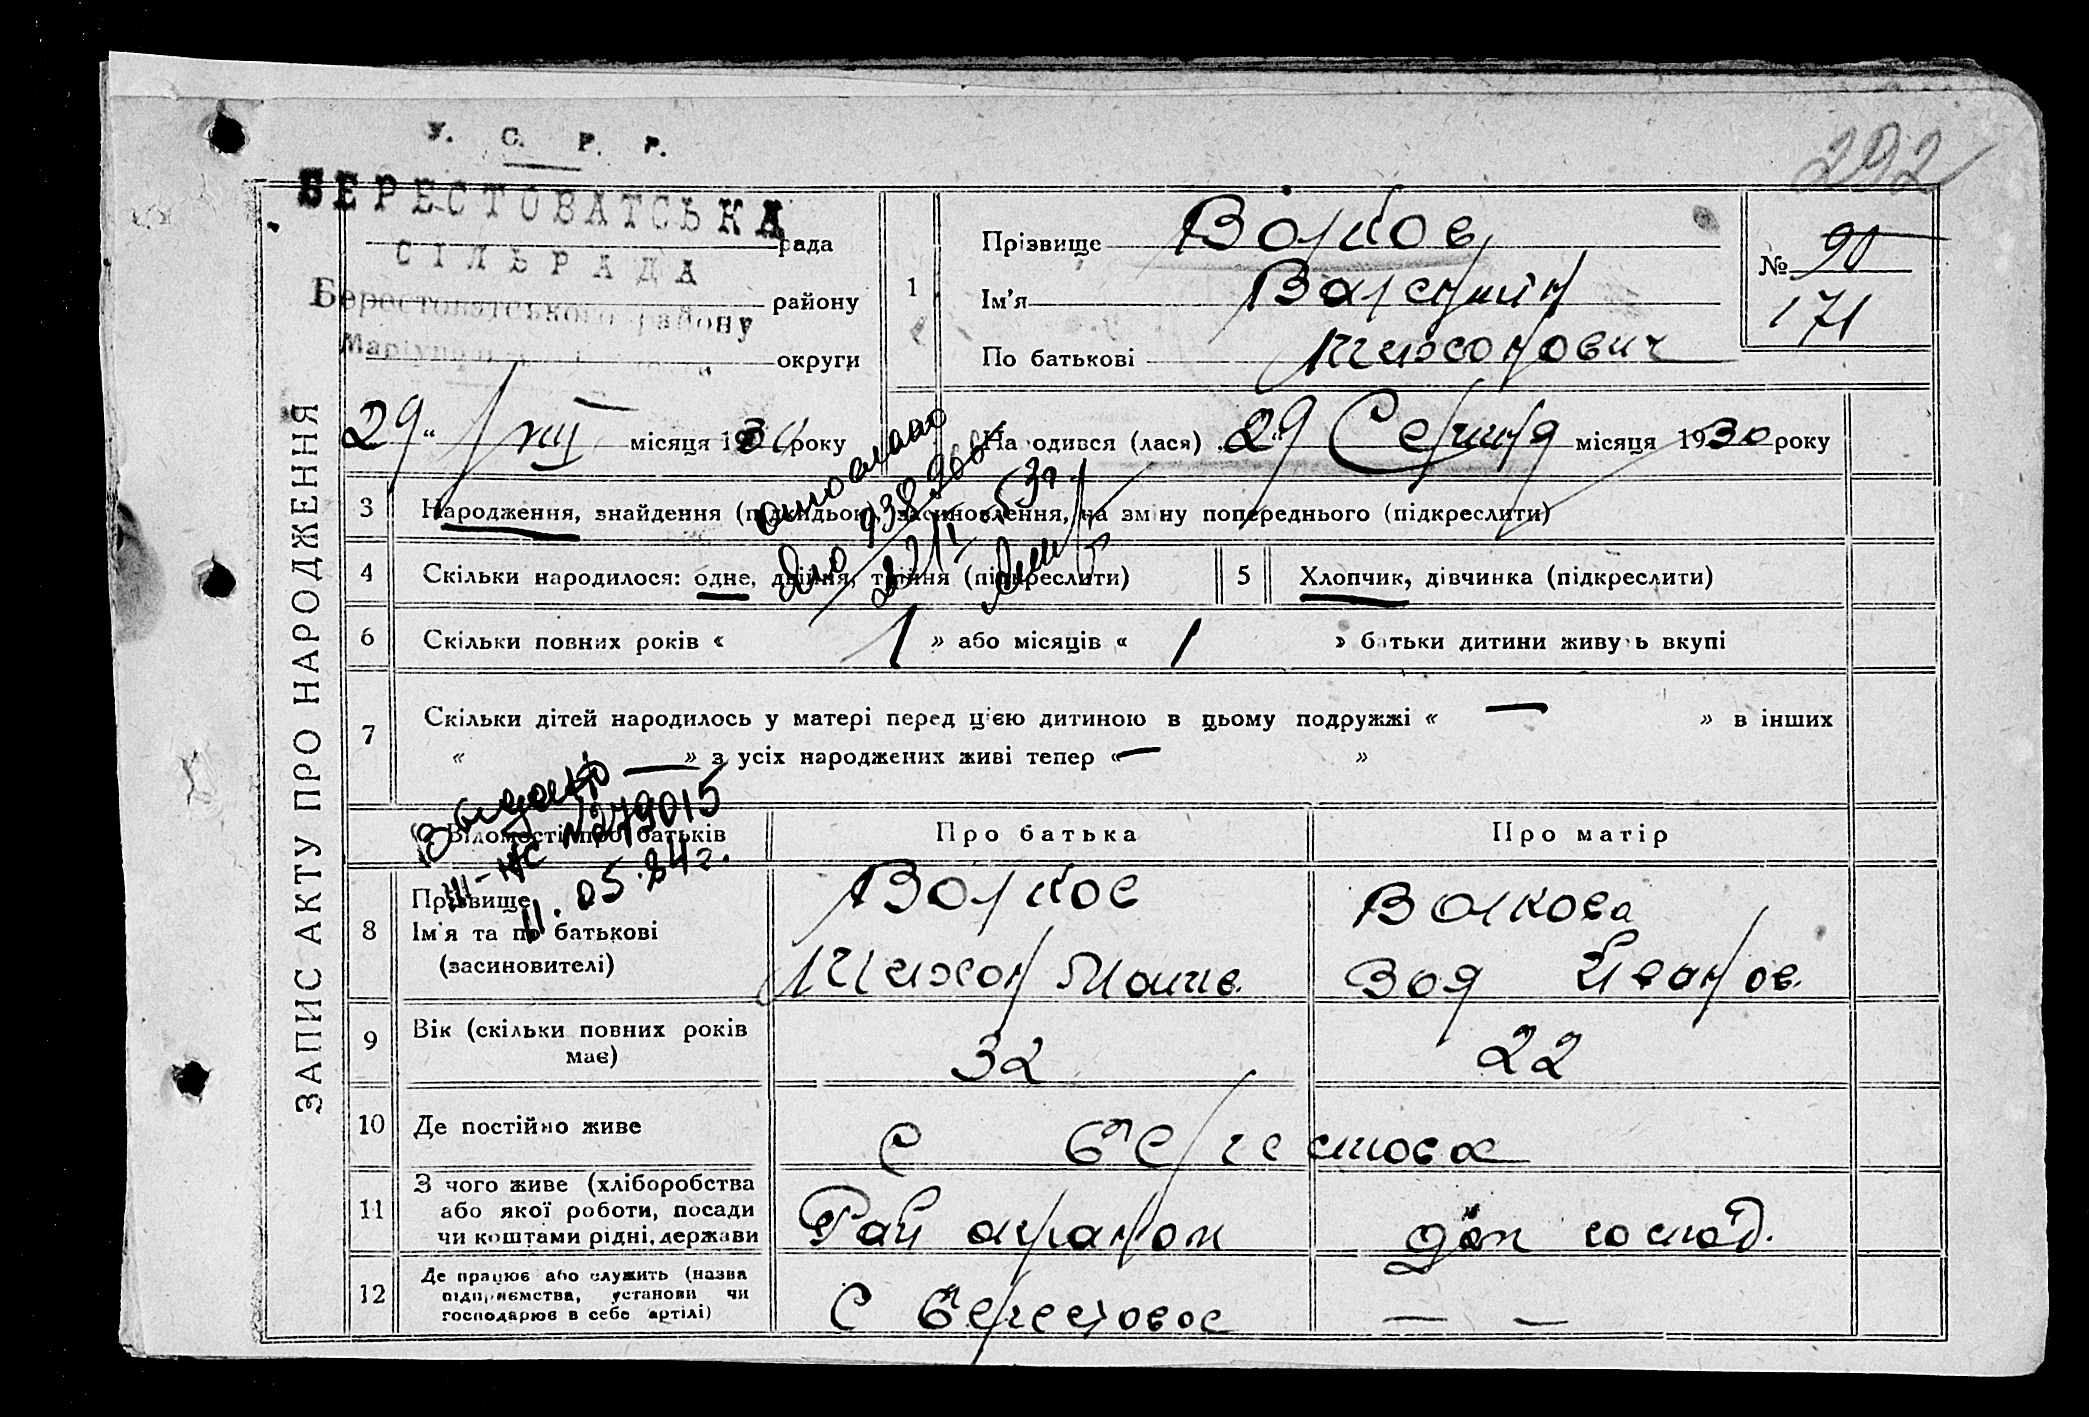 292
У. С. Р. Р.
БЕРЕСТОВАТСЬКА
рада
СІЛЬРАДА
Берестоватського району
району
округи
ЗАПИС АКТУ ПРО НАРОДЖЕННЯ
1
Прізвище Волков
Ім'я Валентин
По батькові Тихонович
№ 90
171
29 " VIII місяця 1930 року
Народився (лася) 29 Серпня місяця 1930 року
3 Народження, знайдення (підкидьок), засиновлення, на зміну попереднього (підкреслити)
4 Скільки народилося: одне, двійня, трійня (підкреслити)
5 Хлопчик, дівчинка (підкреслити)
6 Скільки повних років « 1 » або місяців « 1 » батьки дитини живуть вкупі
7 Скільки дітей народилось у матері перед цією дитиною в цьому подружжі « — » в інших
« — » з усіх народжених живі тепер « — »
Выдано
III-НС №279015
11.05.84г.
Відомості про батьків
Про батька
Про матір
8
Прізвище
Ім'я та по батькові
(засновителі)
Волков
Тихон
Волкова
Зоя Иванов.
9 Вік (скільки повних років
має)
32
22
10 Де постійно живе
С Берестова
11
З чого живе (хліборобства
або якої роботи, посади
чи коштами рідні, держави
Рай агроном
дом господ.
12
Де працює або служить (назва
підприємства, установи чи
господарює в себе артілі)
С Берестовое
— —